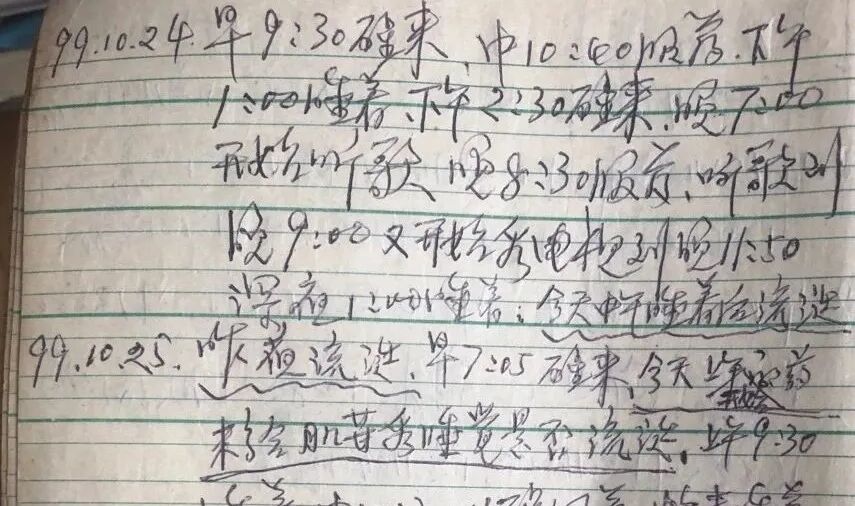 99.10.24.早9:30醒来、中10:40服药.下午
1:00睡着、下午2:30醒来.晚7:00
开始听歌 晚8:30服药、听歌到
晚9:00又开始看电视到晚11:50
深夜1:00睡着;今天中午睡着后流涎
99.10.25.昨夜流涎.早7:05醒来,今天
看睡觉是否流涎、9:30